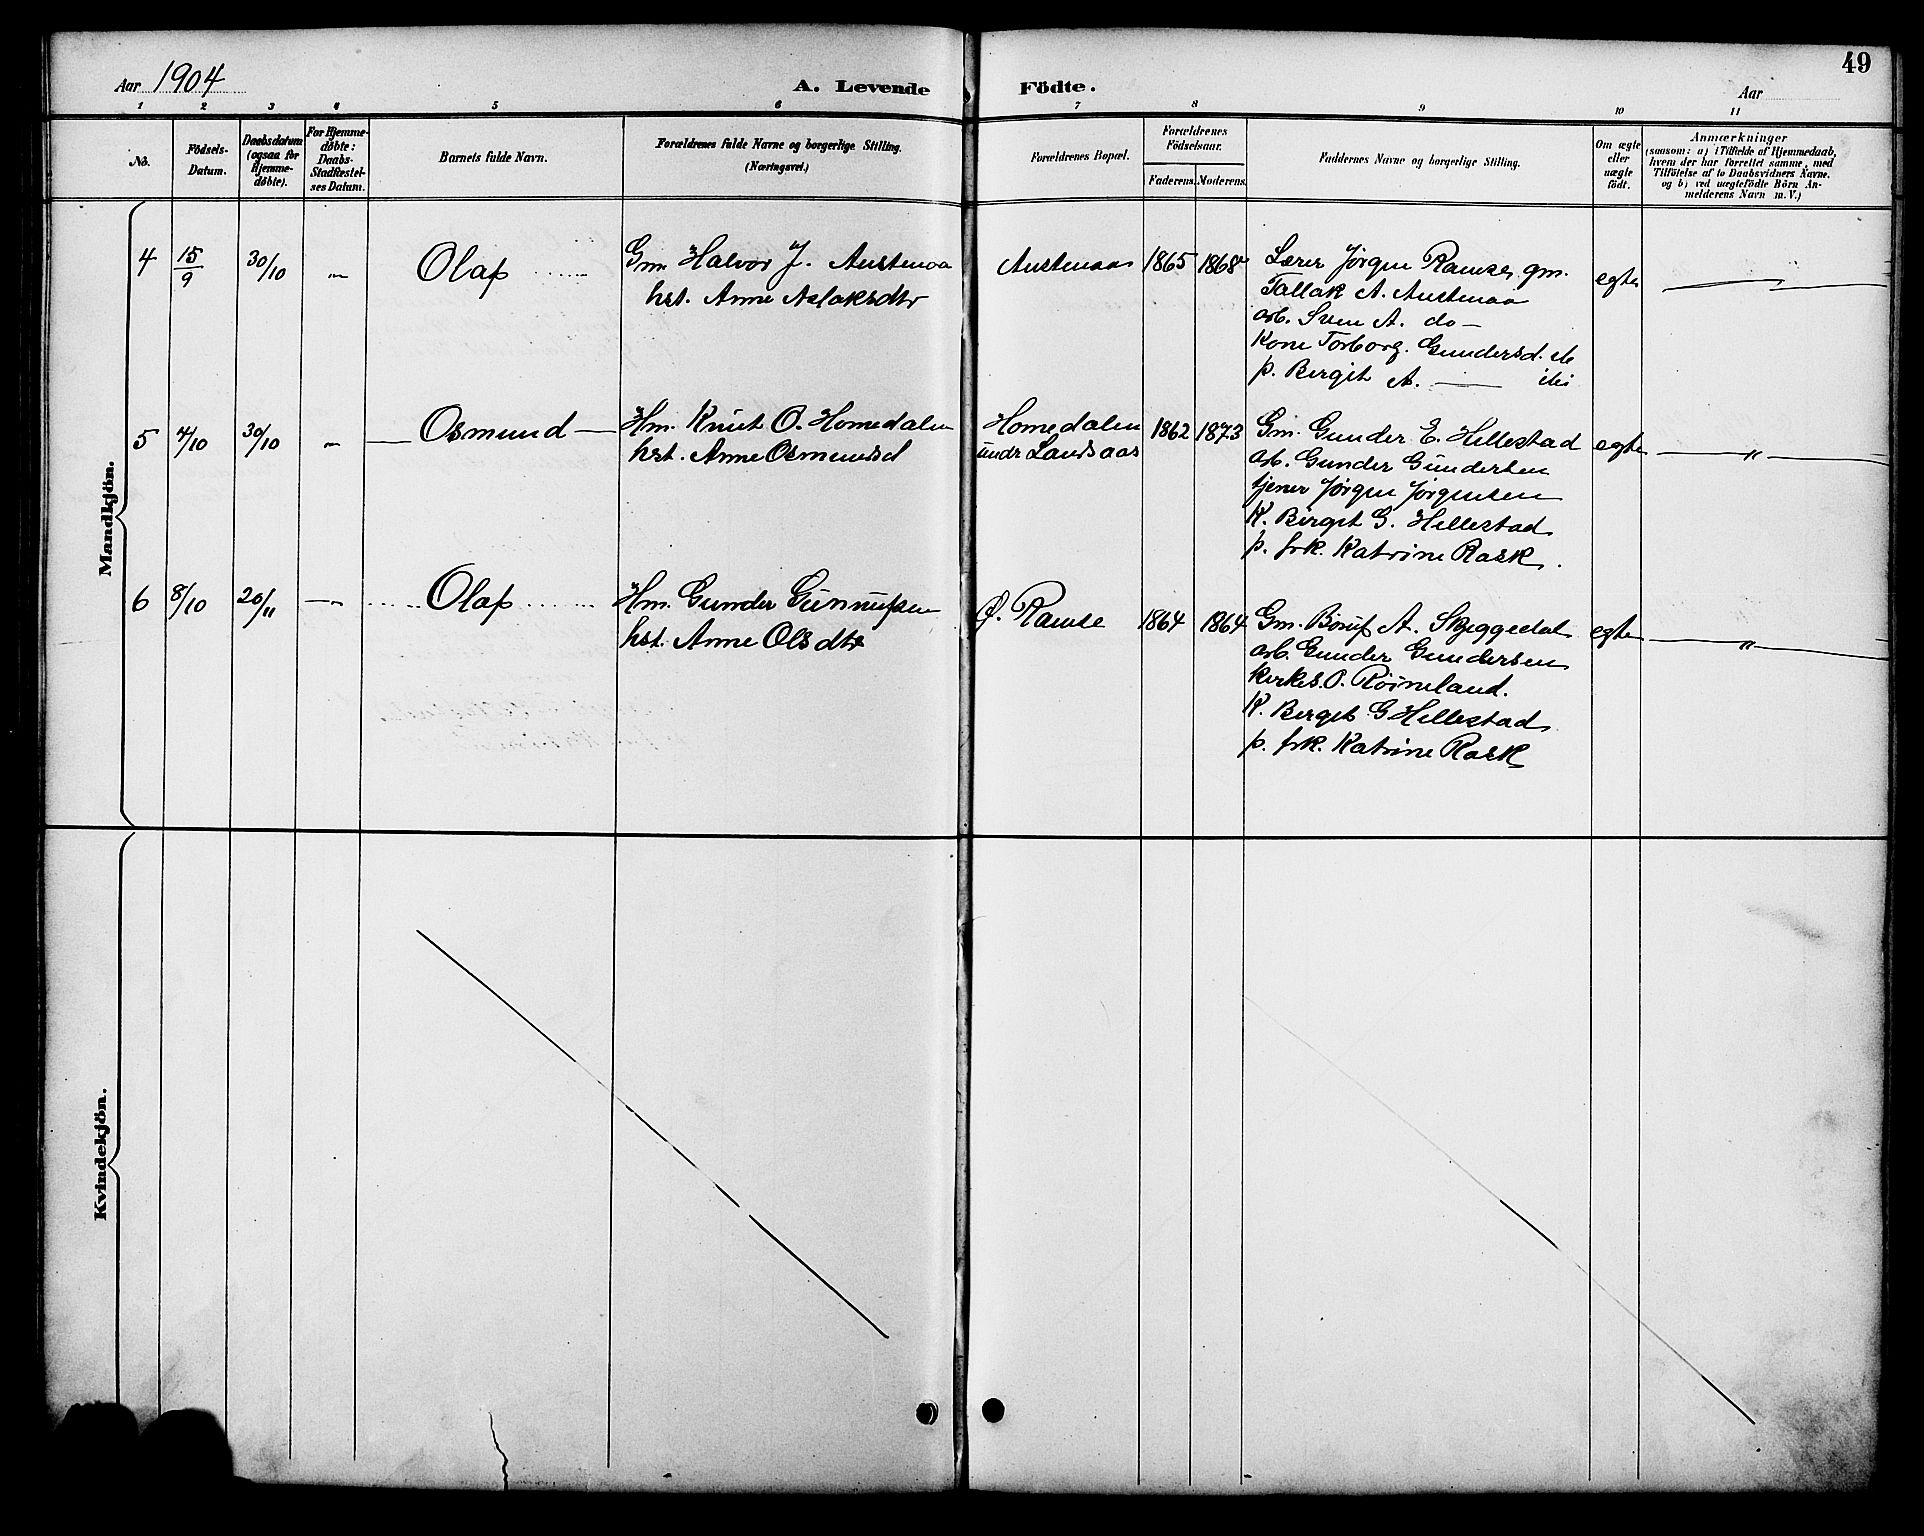 49
Aar 1904
A. Levende Födte.
Aar
1 2 3 4 5 6 7 8 9 10 11
No.
Födsels-Datum.
Daabsdatum (ogsaa for Hjemme-døbte).
For Hjemme-døbte: Daabs-Stadfæstel-ses Datum.
Barnets fulde Navn.
Forældrenes fulde Navne og borgerlige Stilling. (Næringsvei.)
Forældrenes Bopæl.
Forældrenes Födselsaar.
Faderens. Moderens.
Faddernes Navne og borgerlige Stilling.
Om ægte eller uægte födt.
Anmærkninger
(saasom: a) i Tilfælde af Hjemmedaab,
hvem der har forrettet samme, med
Tilföielse af to Daabsvidners Navne.
og b) ved uægtefödte Börn An-
melderens Navn m. V.)
Mandkjön.
4 15/9 30/10 — Olaf Gm. Halvor J. Austenaa Austenaas 1865 1868 Lærer Jörgen Ramse, gm. egte
hst. Anne Aslaksdtr Tallak A. Austenaa
arb. Sven A. do —
Kone Torborg. Gundersd.
p. Bergit A. —
5 4/10 30/10 — Osmund — Hm. Knut O. Homedalen Homedalen 1862 1873 Gm. Gunder E. Hillestad egte — " —
hst. Anne Osmundsd undr Landsaas arb. Gunder Gundersen
tjener Jörgen Jörgensen
K. Birgit G. Hillestad
p. frk. Katrine Rask.
6 8/10 20/11 — Olaf Hm. Gunder Gunnufsen Ø. Ramse 1864 1864 Gm. Böruf A. Skjeggedal egte — " —
hst. Anne Olsdtr arb. Gunder Gundersen
Kirkes. O. Röineland.
K. Berget G Hillestad
p. frk. Katrine Rask
Kvindekjön.